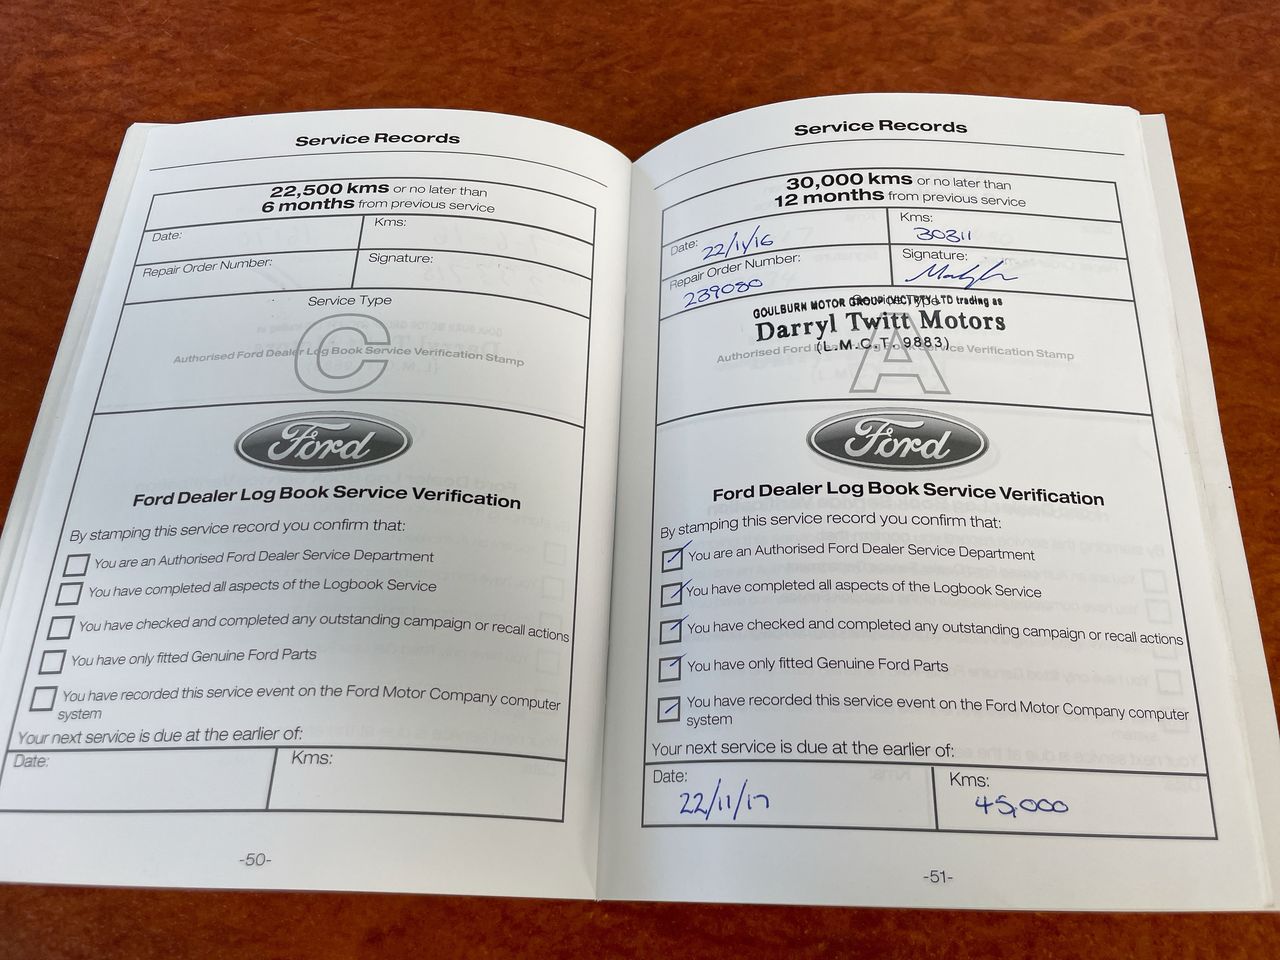 Service Records
22,500 kms or no later than
6 months from previous service
Date:
Kms:
Repair Order Number:
Signature:
Service Type
C
Authorised Ford Dealer Log Book Service Verification Stamp
Ford
Ford Dealer Log Book Service Verification
By stamping this service record you confirm that:
You are an Authorised Ford Dealer Service Department
You have completed all aspects of the Logbook Service
You have checked and completed any outstanding campaign or recall actions
You have only fitted Genuine Ford Parts
You have recorded this service event on the Ford Motor Company computer
system
Your next service is due at the earlier of:
Date:
Kms:
-50-
Service Records
30,000 kms or no later than
12 months from previous service
Date: 22/11/16
Kms:
30311
Repair Order Number:
239080
Signature:
Service Type
GOULBURN MOTOR GROUP (VIC) PTY LTD trading as
Darryl Twitt Motors
(L.M.C.T. 9883)
A
Authorised Ford Dealer Log Book Service Verification Stamp
Ford
Ford Dealer Log Book Service Verification
By stamping this service record you confirm that:
You are an Authorised Ford Dealer Service Department
You have completed all aspects of the Logbook Service
You have checked and completed any outstanding campaign or recall actions
You have only fitted Genuine Ford Parts
You have recorded this service event on the Ford Motor Company computer
system
Your next service is due at the earlier of:
Date:
22/11/17
Kms:
45,000
-51-